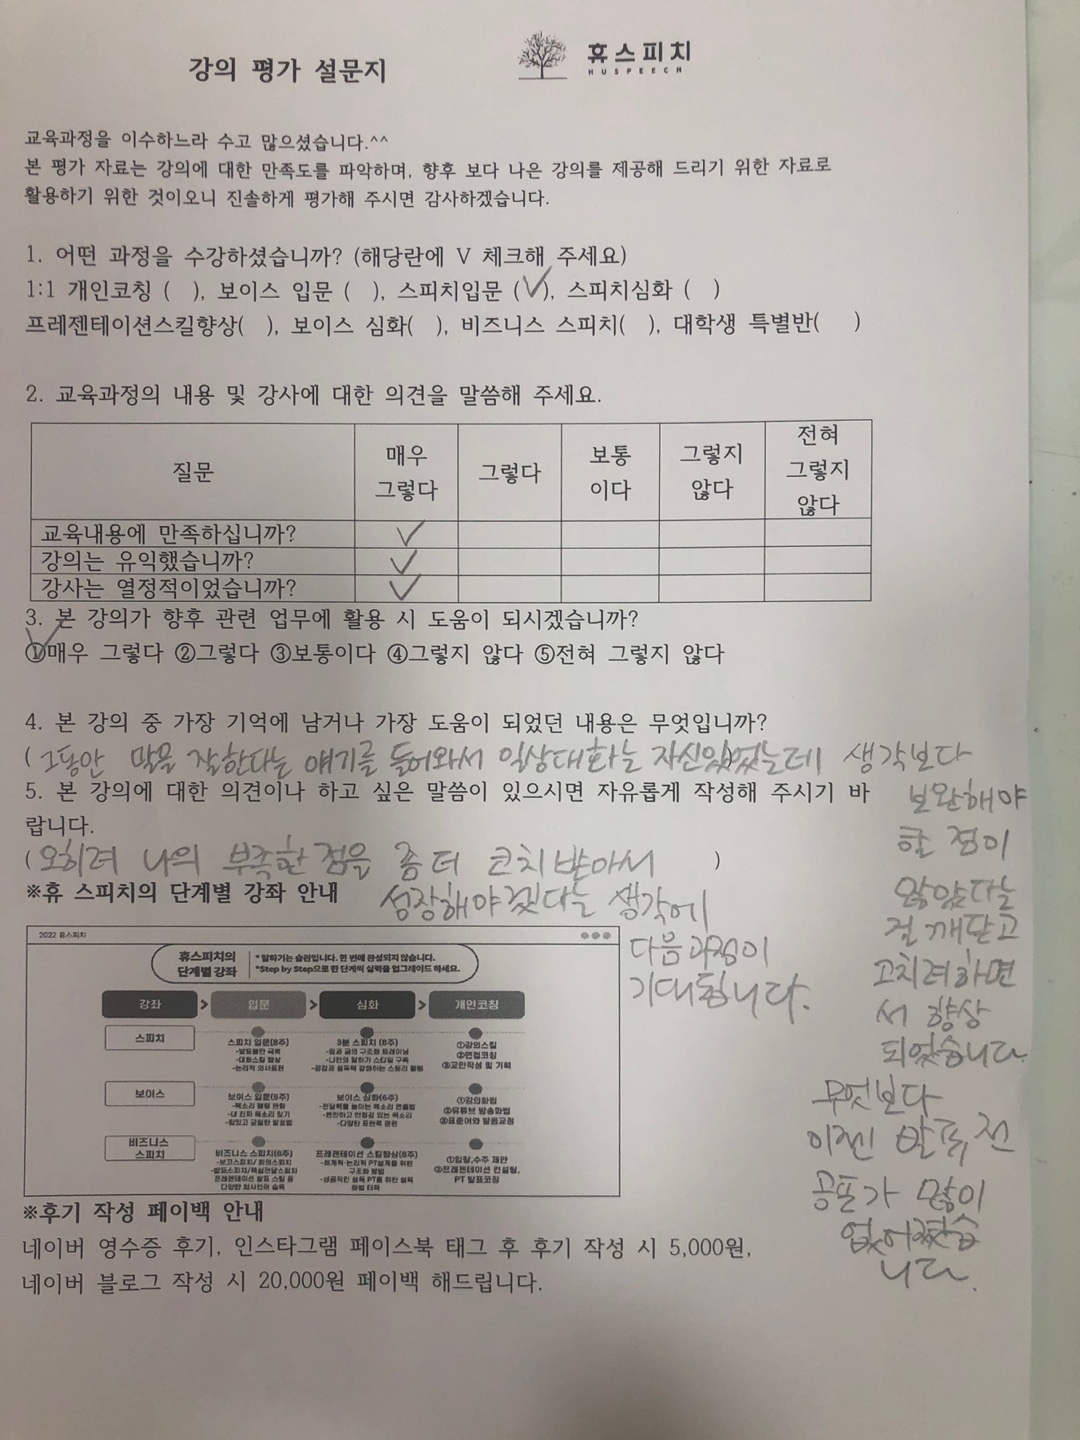 강의 평가 설문지
휴스피치
HUSPEECH
교육과정을 이수하느라 수고 많으셨습니다.^^
본 평가 자료는 강의에 대한 만족도를 파악하며, 향후 보다 나은 강의를 제공해 드리기 위한 자료로
활용하기 위한 것이오니 진솔하게 평가해 주시면 감사하겠습니다.
1. 어떤 과정을 수강하셨습니까? (해당란에 V 체크해 주세요)
1:1 개인코칭 ( ), 보이스 입문 ( ), 스피치입문 (✓), 스피치심화 ( )
프레젠테이션스킬향상( ), 보이스 심화( ), 비즈니스 스피치( ), 대학생 특별반( )
2. 교육과정의 내용 및 강사에 대한 의견을 말씀해 주세요.
질문
매우
그렇다
그렇다
보통
이다
그렇지
않다
전혀
그렇지
않다
교육내용에 만족하십니까? ✓
강의는 유익했습니까? ✓
강사는 열정적이었습니까? ✓
3. 본 강의가 향후 관련 업무에 활용 시 도움이 되시겠습니까?
①매우 그렇다 ②그렇다 ③보통이다 ④그렇지 않다 ⑤전혀 그렇지 않다
4. 본 강의 중 가장 기억에 남거나 가장 도움이 되었던 내용은 무엇입니까?
(그동안 말을 잘한다는 얘기를 들어와서 일상대화는 자신있었는데 생각보다
보완해야
할 점이
많았다는
걸 깨닫고
고치려하면
서 향상
되었습니다
무엇보다
이젠 발표 전
공포가 많이
없어졌습
니다.
5. 본 강의에 대한 의견이나 하고 싶은 말씀이 있으시면 자유롭게 작성해 주시기 바
랍니다.
(오히려 나의 부족한 점을 좀 더 코치받아서 )
성장해야겠다는 생각에
다음과정이
기대됩니다.
※휴 스피치의 단계별 강좌 안내
2022 휴스피치
휴스피치의
단계별 강좌
*말하기는 습관입니다. 한 번에 완성되지 않습니다.
*Step by Step으로 한 단계씩 실력을 업그레이드 하세요.
강좌 > 입문 > 심화 > 개인코칭
스피치
스피치 입문(8주)
-발표불안 극복
-대화스킬 향상
-논리적 의사표현
3분 스피치 (8주)
-말과 글의 구조화 트레이닝
-나만의 말하기 스타일 구축
①강의스킬
②면접코칭
③교안작성 및 기획
보이스
보이스 입문(6주)
-내 진짜 목소리 찾기
보이스 심화(6주)
-다양한 표현력 훈련
①강의화법
②유튜브 방송화법
③표준어와 발음교정
비즈니스
스피치
비즈니스 스피치(8주)
-보고스피치/ 회의스피치
프레젠테이션 스킬 등
다양한 의사언어 습득
프레젠테이션 스킬향상(8주)
-체계적·논리적 PT설계를 위한
구조화 방법
-성공적인 설득 PT를 위한 설득
화법 터득
①입찰,수주 제안
②프레젠테이션 컨설팅,
PT 발표코칭
※후기 작성 페이백 안내
네이버 영수증 후기, 인스타그램 페이스북 태그 후 후기 작성 시 5,000원,
네이버 블로그 작성 시 20,000원 페이백 해드립니다.